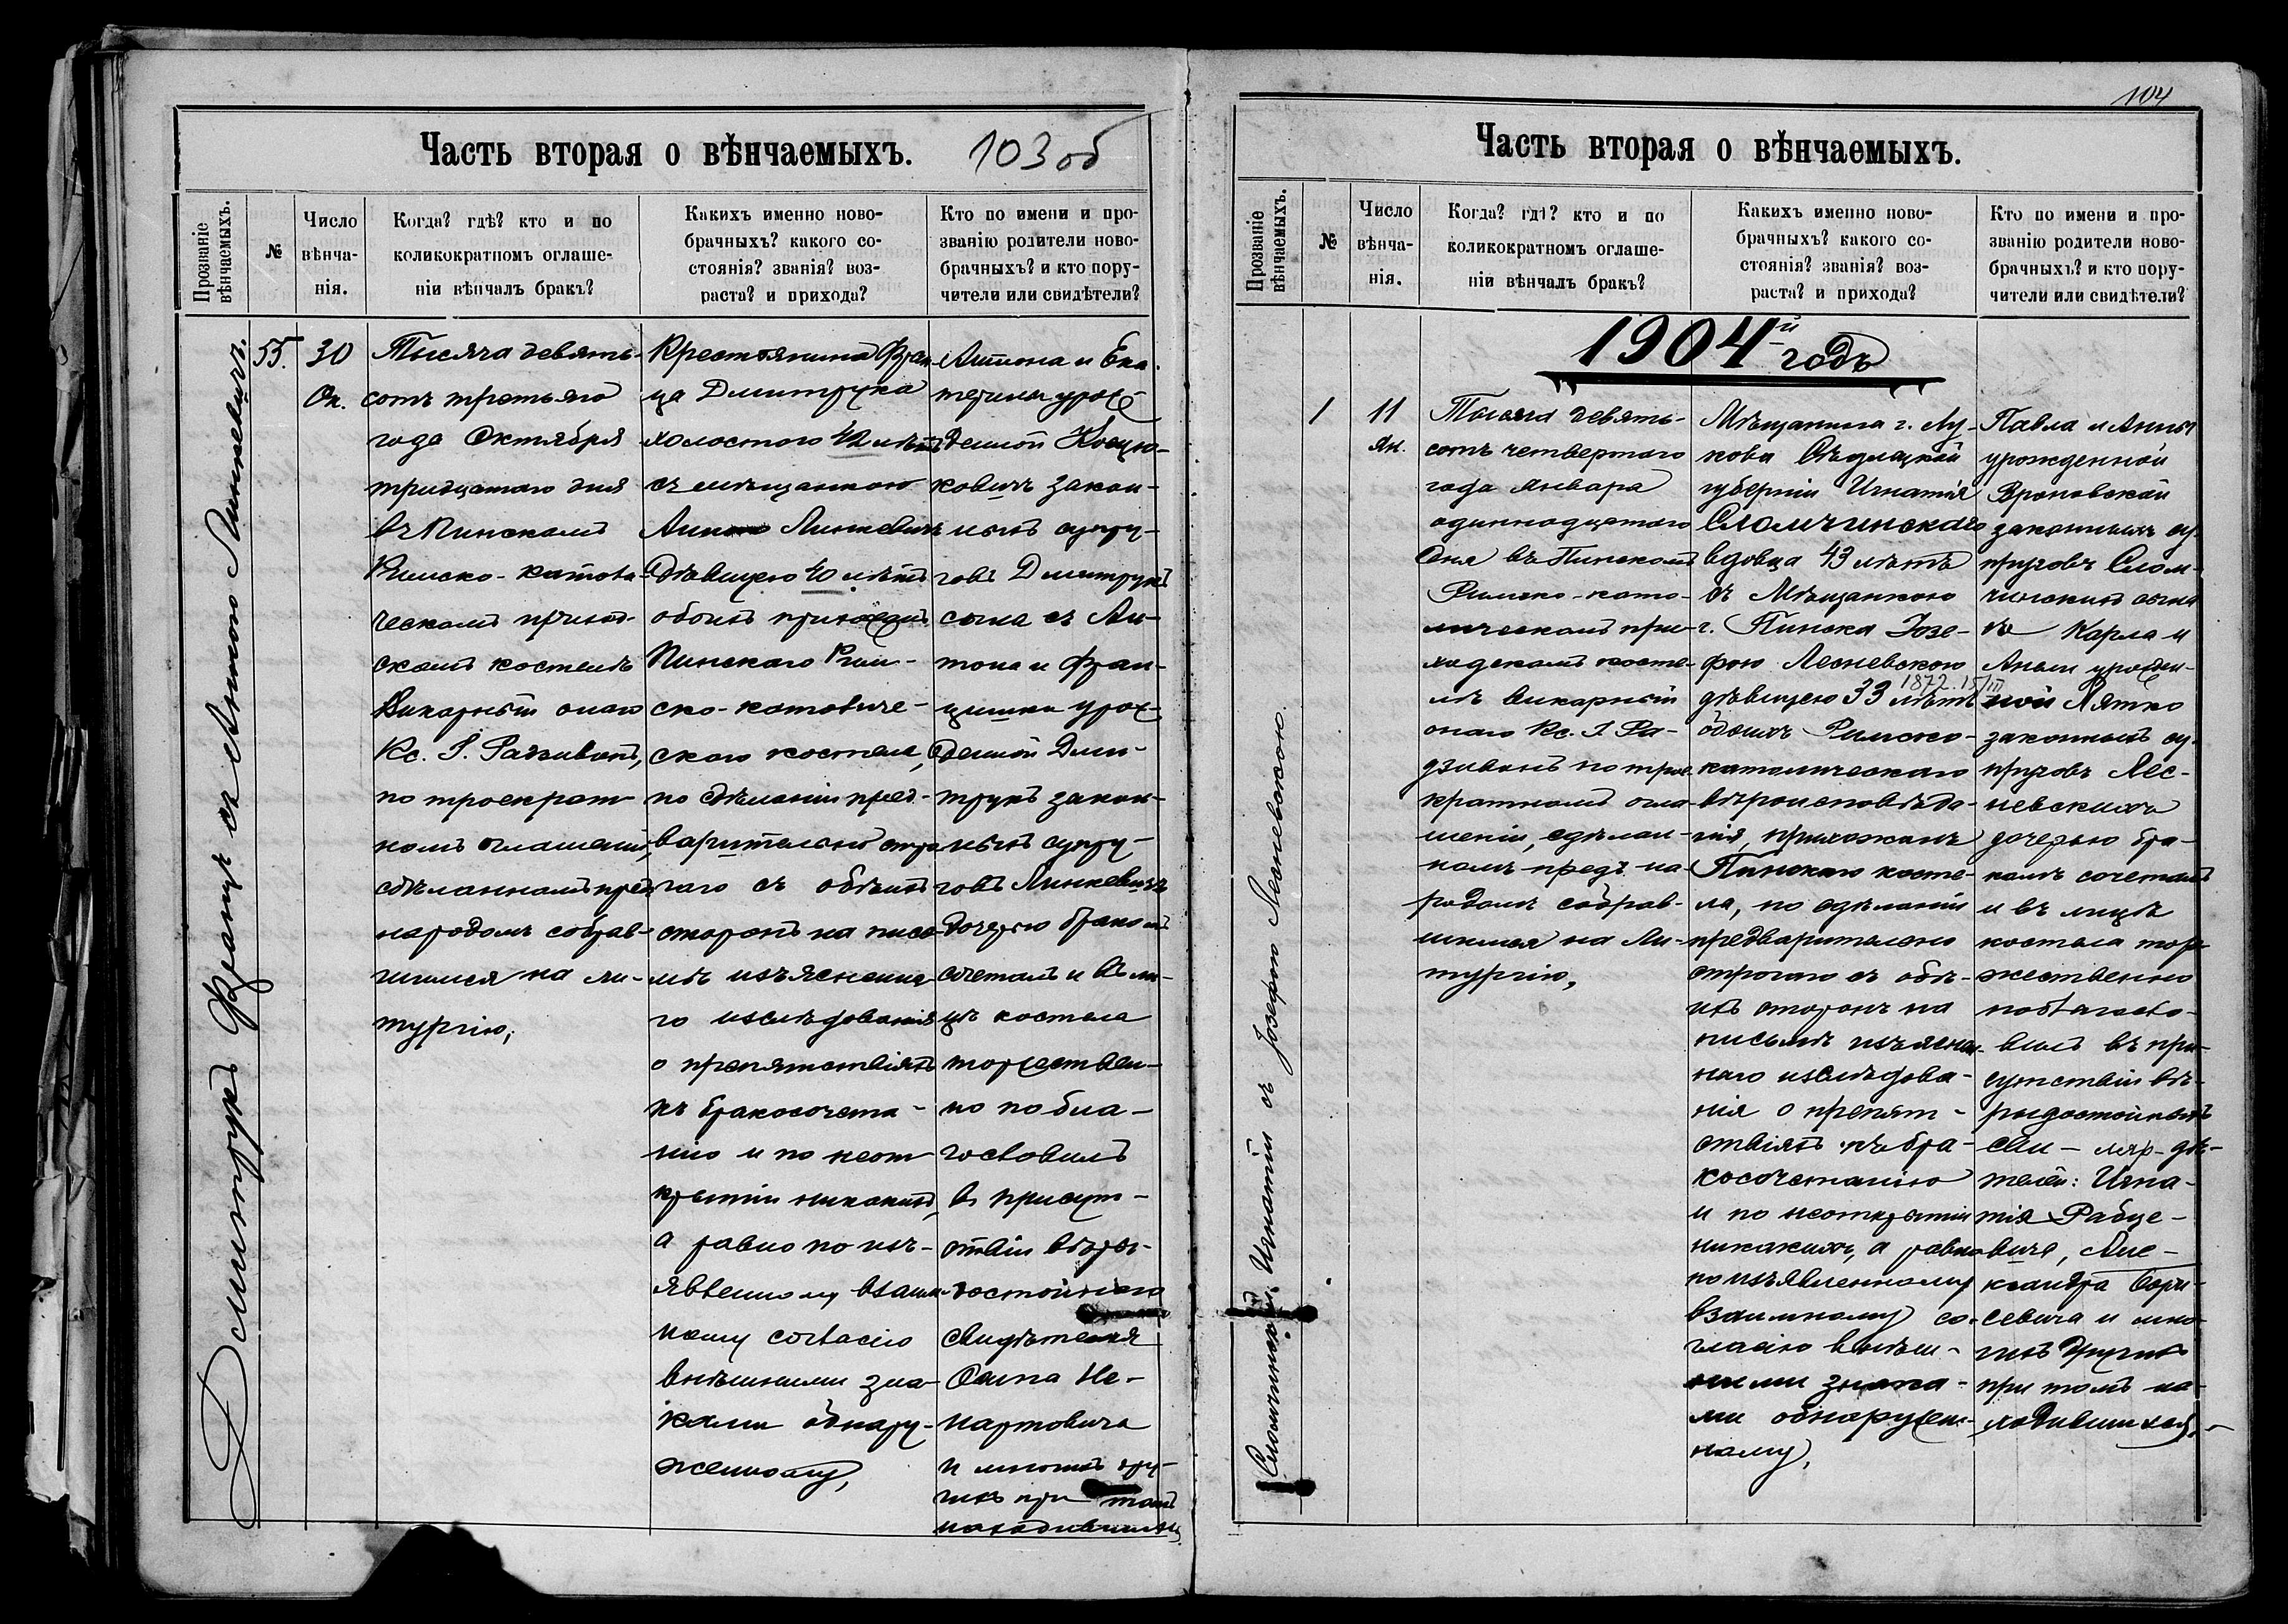 Часть вторая о вѣнчаемыхъ.
103 об
Прозваніе вѣнчаемыхъ.
№
Число вѣнча-
нія.
Когда? гдѣ? кто и по
коликократномъ оглаше-
ніи вѣнчалъ бракъ?
Какихъ именно ново-
брачныхъ? какого со-
стоянія? званія? воз-
раста? и прихода?
Кто по имени и про-
званію родители ново-
брачныхъ? и кто пору-
чители или свидѣтели?
Дмитрукъ Францъ съ Анною Линкевичъ.
55.
30
Ок.
Тысяча девять-
сотъ третьяго
года Октября
тридцатаго дня
въ Пинскомъ
Римско-католи-
ческомъ приход-
скомъ костелѣ
Викарный онаго
Кс. І. Радзивонъ,
по троекрат-
номъ оглашеніи,
сдѣланномъ предъ
народомъ собрав-
шимся на ли-
тургію,
Крестьянина Фран-
ца Дмитрука
холостого 42 лѣтъ
съ мѣщанкою
Линкевичъ
дѣвицею 40 лѣтъ
обоихъ прихожанъ
Пинскаго Рим-
ско-католиче-
скаго костела,
по сдѣланіи пред-
варительно стро
гаго съ обѣихъ
сторонъ на пись-
мѣ изъясненна
го изслѣдованія
о препятствіяхъ
къ бракосочета-
нію и по неот
крытіи никакихъ,
а равно по изъ-
явленному взаим-
ному согласію
внѣшними зна-
ками обнару-
женному,
Антона и Ека-
терины урож
денной Коцю-
бовичъ закон-
ныхъ супру-
говъ Дмитрукъ
сына съ Ан-
тона и Фран-
цишки урож-
денной Дми-
трукъ закон-
ныхъ супру-
говъ Линкевичъ
дочерью бракомъ
сочеталъ и въ ли-
цѣ костела
торжествен-
но побла-
гословилъ
въ присут-
ствіи вѣро-
достойнаго
свидѣтеля
Осипа Не-
нартовича
и многихъ дру-
гихъ при томъ
находившихся
104
Часть вторая о вѣнчаемыхъ.
Прозваніе вѣнчаемыхъ.
№
Число
вѣнча-
нія.
Когда? гдѣ? кто и по
коликократномъ оглаше-
ніи вѣнчалъ бракъ?
Какихъ именно ново-
брачныхъ? какого со-
стоянія? званія? воз-
раста? и прихода?
Кто по имени и про-
званію родители ново-
брачныхъ? и кто пору-
чители или свидѣтели?
1904й годъ
Сломчинскій Игнатій съ Іозефою Лесневскою.
1
11
Ян.
Тысяча девять-
сотъ четвертаго
года Января
одиннадцатаго
дня въ Пинскомъ
Римско-като-
лическомъ при-
ходскомъ косте-
лѣ викарный
онаго Кс. І. Ра-
дзивонъ по трое-
кратномъ огла-
шеніи, сдѣлан-
номъ предъ на-
родомъ собрав-
шимся на Ли-
тургію,
Мѣщанина г. Лу-
кова Сѣдлецкой
губерніи Игнатія
Сломчинскаго
вдовца 43 лѣтъ
съ Мѣщанкою
г. Пинска Іозе-
фою Лесневскою
1872.15/III
дѣвицею 33 лѣтъ
обоихъ Римско-
католическаго
вѣроисповѣда-
нія, прихожанъ
Пинскаго косте-
ла, по сдѣланіи
предварительно
строгаго съ обѣ-
ихъ сторонъ на
письмѣ изъяснен-
наго изслѣдова-
нія о препят-
ствіяхъ къ бра-
косочетанію
и по неоткрытіи
никакихъ, а равно
по изъявленному
взаимному со-
гласію внѣш-
ними знака-
ми обнаружен-
ному,
Павла и Анны
урожденной
Вроновской
законныхъ су-
пруговъ Слом-
чинскихъ сына
Карла и
Анны урожден-
ной Лятко
законныхъ су-
пруговъ Лес-
невскихъ
дочерью бра-
комъ сочеталъ
и въ лицѣ
костела тор-
жественно
поблагосло-
вилъ въ при-
сутствіи вѣ-
родостойныхъ
сви- дѣ-
телей: Игна-
тія Рабце-
вича, Але-
ксандра Бори-
севича и мно-
гихъ другихъ
при томъ на-
ходившихся.